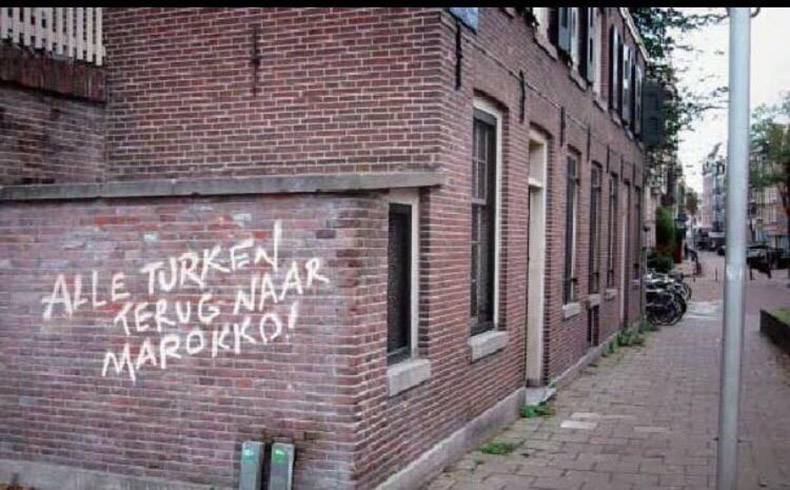 ALLE TURKEN
TERUG NAAR
MAROKKO!